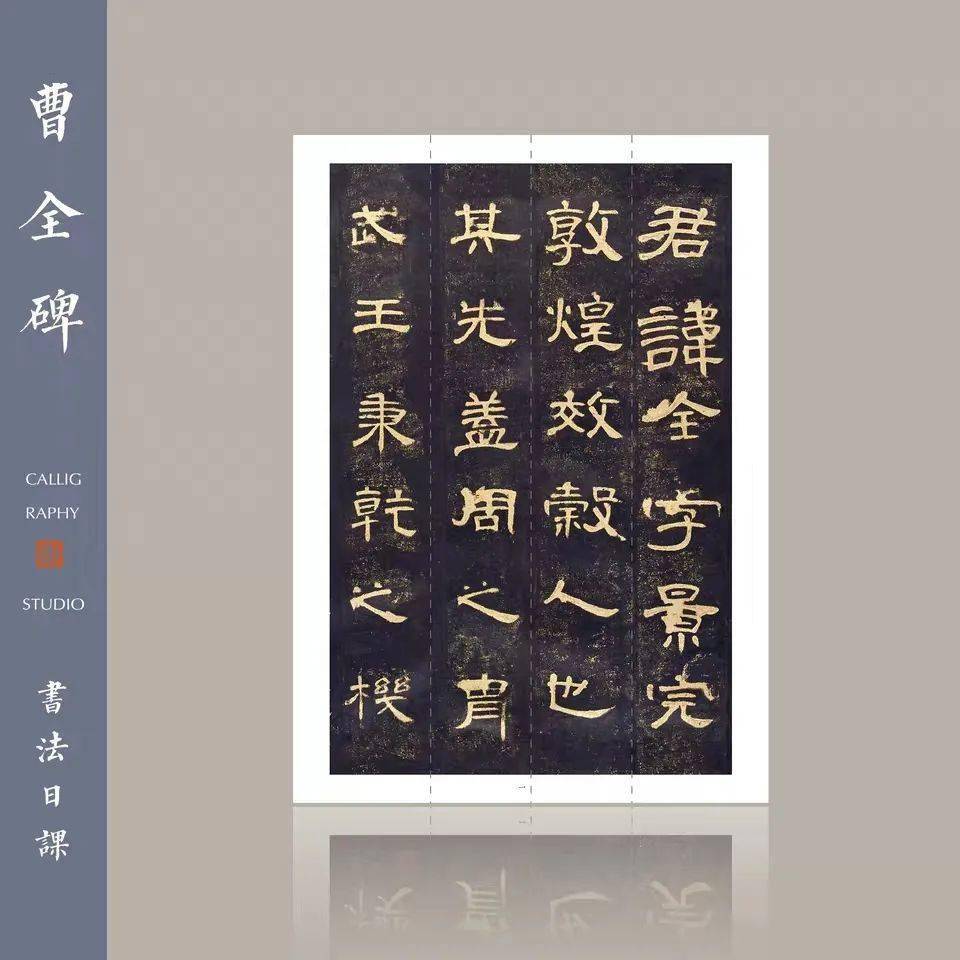 曹全碑
CALLIG
RAPHY
STUDIO
書法日課
君諱全字景完
敦煌效穀人也
其先蓋周之胄
武王秉乾之機
一